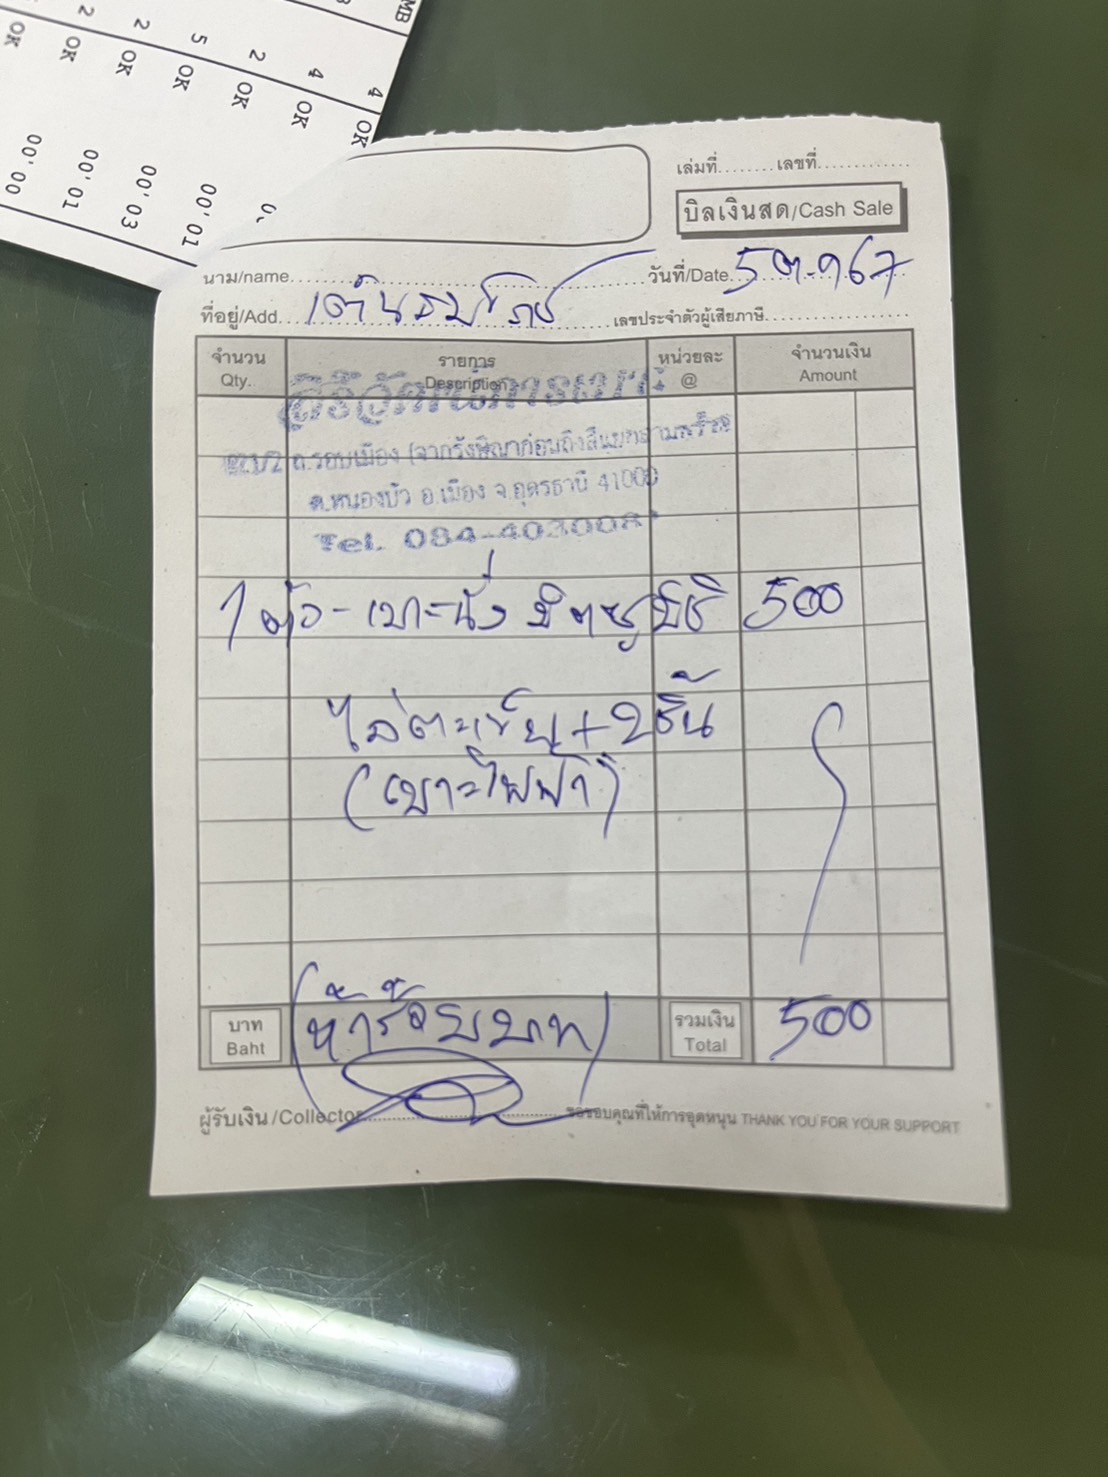 MB
4 OK
4 OK
2 OK
5 OK 00'01
2 OK 00'03
2 OK 00'01
OK 00'00
เล่มที่........เลขที่..............
บิลเงินสด/Cash Sale
นาม/name
วันที่/Date 5 ต.ค 67
ที่อยู่/Add.
เลขประจำตัวผู้เสียภาษี
จำนวน รายการ หน่วยละ จำนวนเงิน
Qty. Description @ Amount
ถ.รอบเมือง
ต.หนองบัว อ.เมือง จ.อุดรธานี 41000
Tel. 084-403008
1 ตัว - เบาะนั่ง มิตซูบิชิ 500
ไล่ตะเข็บ + 2 ชิ้น
(เบาะไฟฟ้า)
บาท (ห้าร้อยบาท) รวมเงิน 500
Baht Total
ผู้รับเงิน/Collector
ขอขอบคุณที่ให้การอุดหนุน THANK YOU FOR YOUR SUPPORT